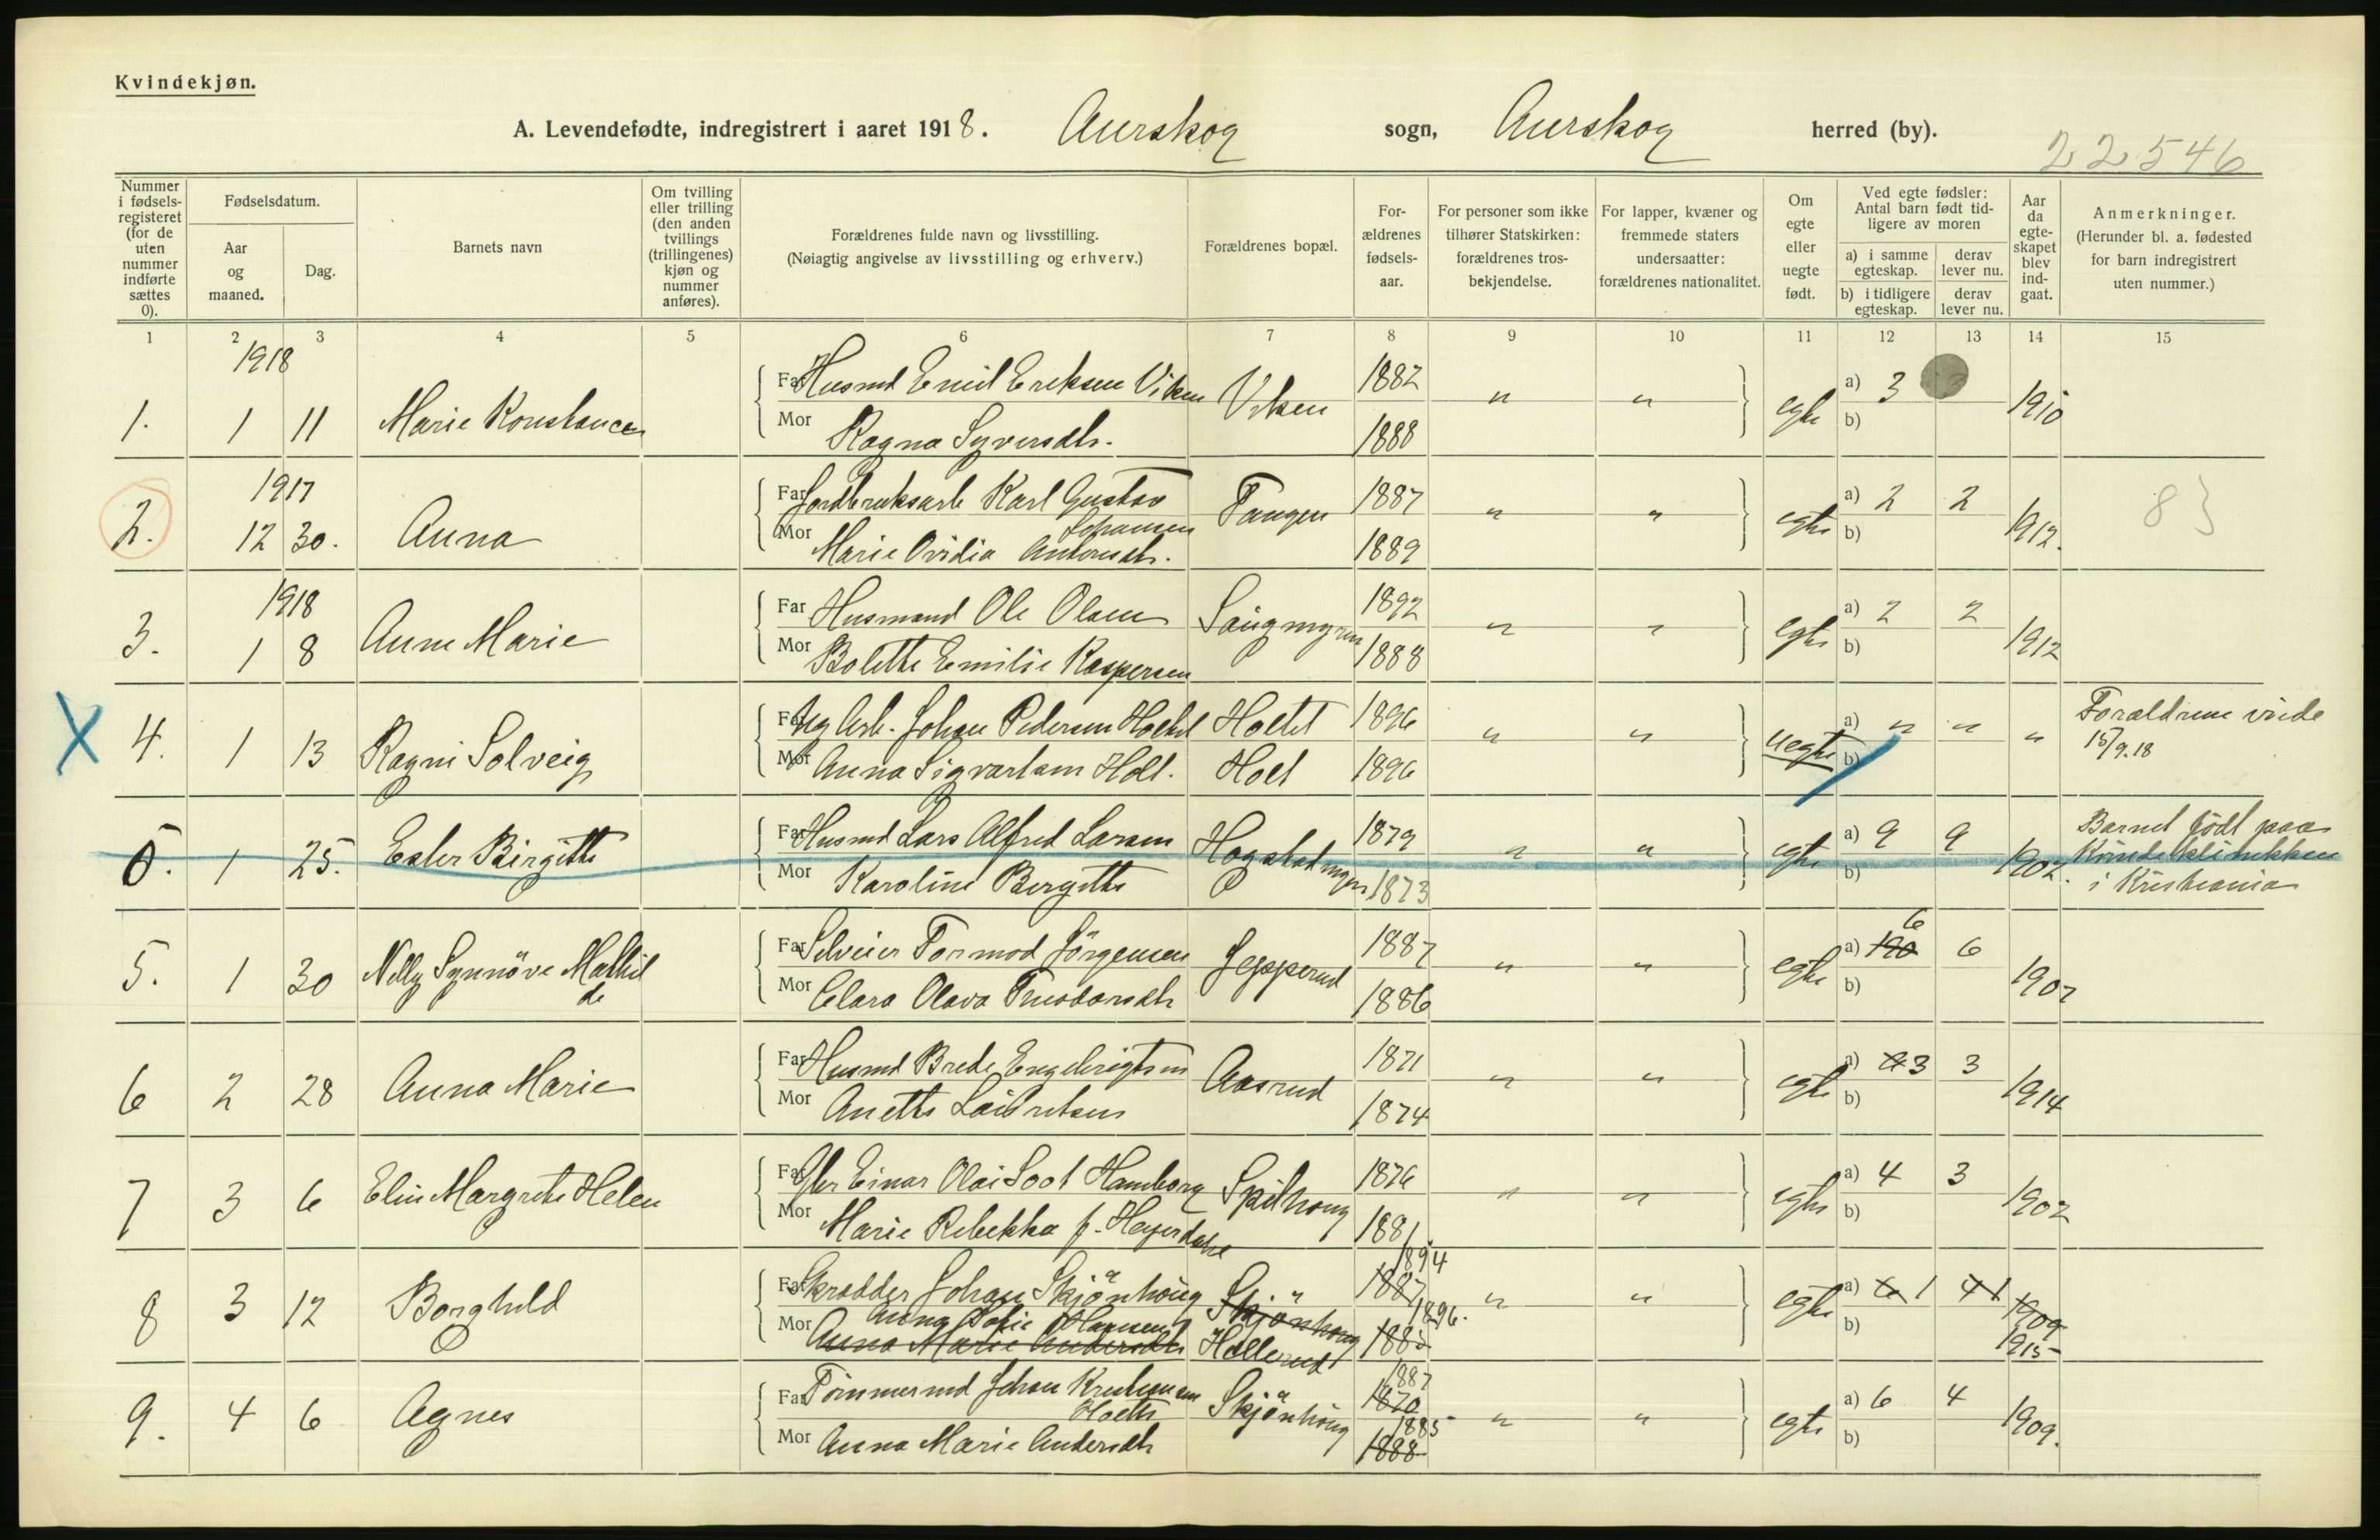 Kvindekjøn.
A. Levendefødte, indregistrert i aaret 1918. Aurskog sogn, Aurskog herred (by).
22546
Nummer i fødselsregisteret (for de uten nummer indførte sættes 0).
Fødselsdatum.
Aar og maaned.
Dag.
Barnets navn
Om tvilling eller trilling (den anden tvillings (trillingenes) kjøn og nummer anføres).
Forældrenes fulde navn og livsstilling.
(Nøiagtig angivelse av livsstilling og erhverv.)
Forældrenes bopæl.
Forældrenes fødselsaar.
For personer som ikke tilhører Statskirken: forældrenes trosbekjendelse.
For lapper, kvæner og fremmede staters undersaatter: forældrenes nationalitet.
Om egte eller uegte født.
Ved egte fødsler: Antal barn født tidligere av moren
a) i samme egteskap.
derav lever nu.
b) i tidligere egteskap.
derav lever nu.
Aar da egteskapet blev indgaat.
Anmerkninger.
(Herunder bl. a. fødested for barn indregistrert uten nummer.)
1 2 3 4 5 6 7 8 9 10 11 12 13 14 15
1918
1. 1 11 Marie Konstance
Far Husmd Emil Eriksen Viken Viken 1882 " " egte a) 3 3 1910
Mor Ragna Syversdtr. 1888 b)
1917
2. 12 30. Anna
Far Jordbruksarb Karl Gustav Johansen Tangen 1887 " " egte a) 2 2 1912. 8}
Mor Marie Ovidia Antonsdtr. 1889 b)
1918
3. 1 8 Anne Marie
Far Husmand Ole Olsen 1892 " " egte a) 2 2 1912
Mor Bolette Emilie Kaspersen 1888 b)
X 4. 1 13 Ragni Solveig
Far Ug Arb. Johan Pedersen Holtet Holtet 1896 " " uegte a) " " " Forældrene viede
15/9.18
Mor Anna Sigvartsen Holt. Holt 1896 b)
0. 1 25. Ester Birgitte
Far Husmd Lars Alfred Larsen 1879 " " egte a) 9 9 1902. Barnet födt paa
Kvindeklinikken
i Kristiania
Mor Karoline Bergitte 1873 b)
5. 1 30 Nelly Synnöve Mathilde
Far Selveier Tormod Jörgensen Jepperud 1887 " " egte a) 190 6 6 1907
Mor Clara Olava Theodorsdtr 1886 b)
6 2 28 Anna Marie
Far Husmd Brede Engebrigtsen Aasrud 1871 " " egte a) 3 3 1914
Mor Anette Lauritsen 1874 b)
7 3 6 Elin Margrete Helen
Far Gbr Einar Olai Soot Hamborg Spilhoug 1876 " " egte a) 4 3 1902
Mor Marie Rebekka f. Heyerdahl 1881. b)
8 3 12 Borghild
Far Skrædder Johan Skjönhoug Skjönhoug 1887 1894 " " egte a) 6 1 4 1 1909 1915
Mor Anna Sofie Hansen Anna Marie Andersdtr Hellerud 1885 1896. b)
9. 4 6 Agnes
Far Tömmermd Johan Kristiansen Holts Skjönhoug 1870 1887 " " egte a) 6 4 1909.
Mor Anna Marie Andersdtr 1888 1885 b)